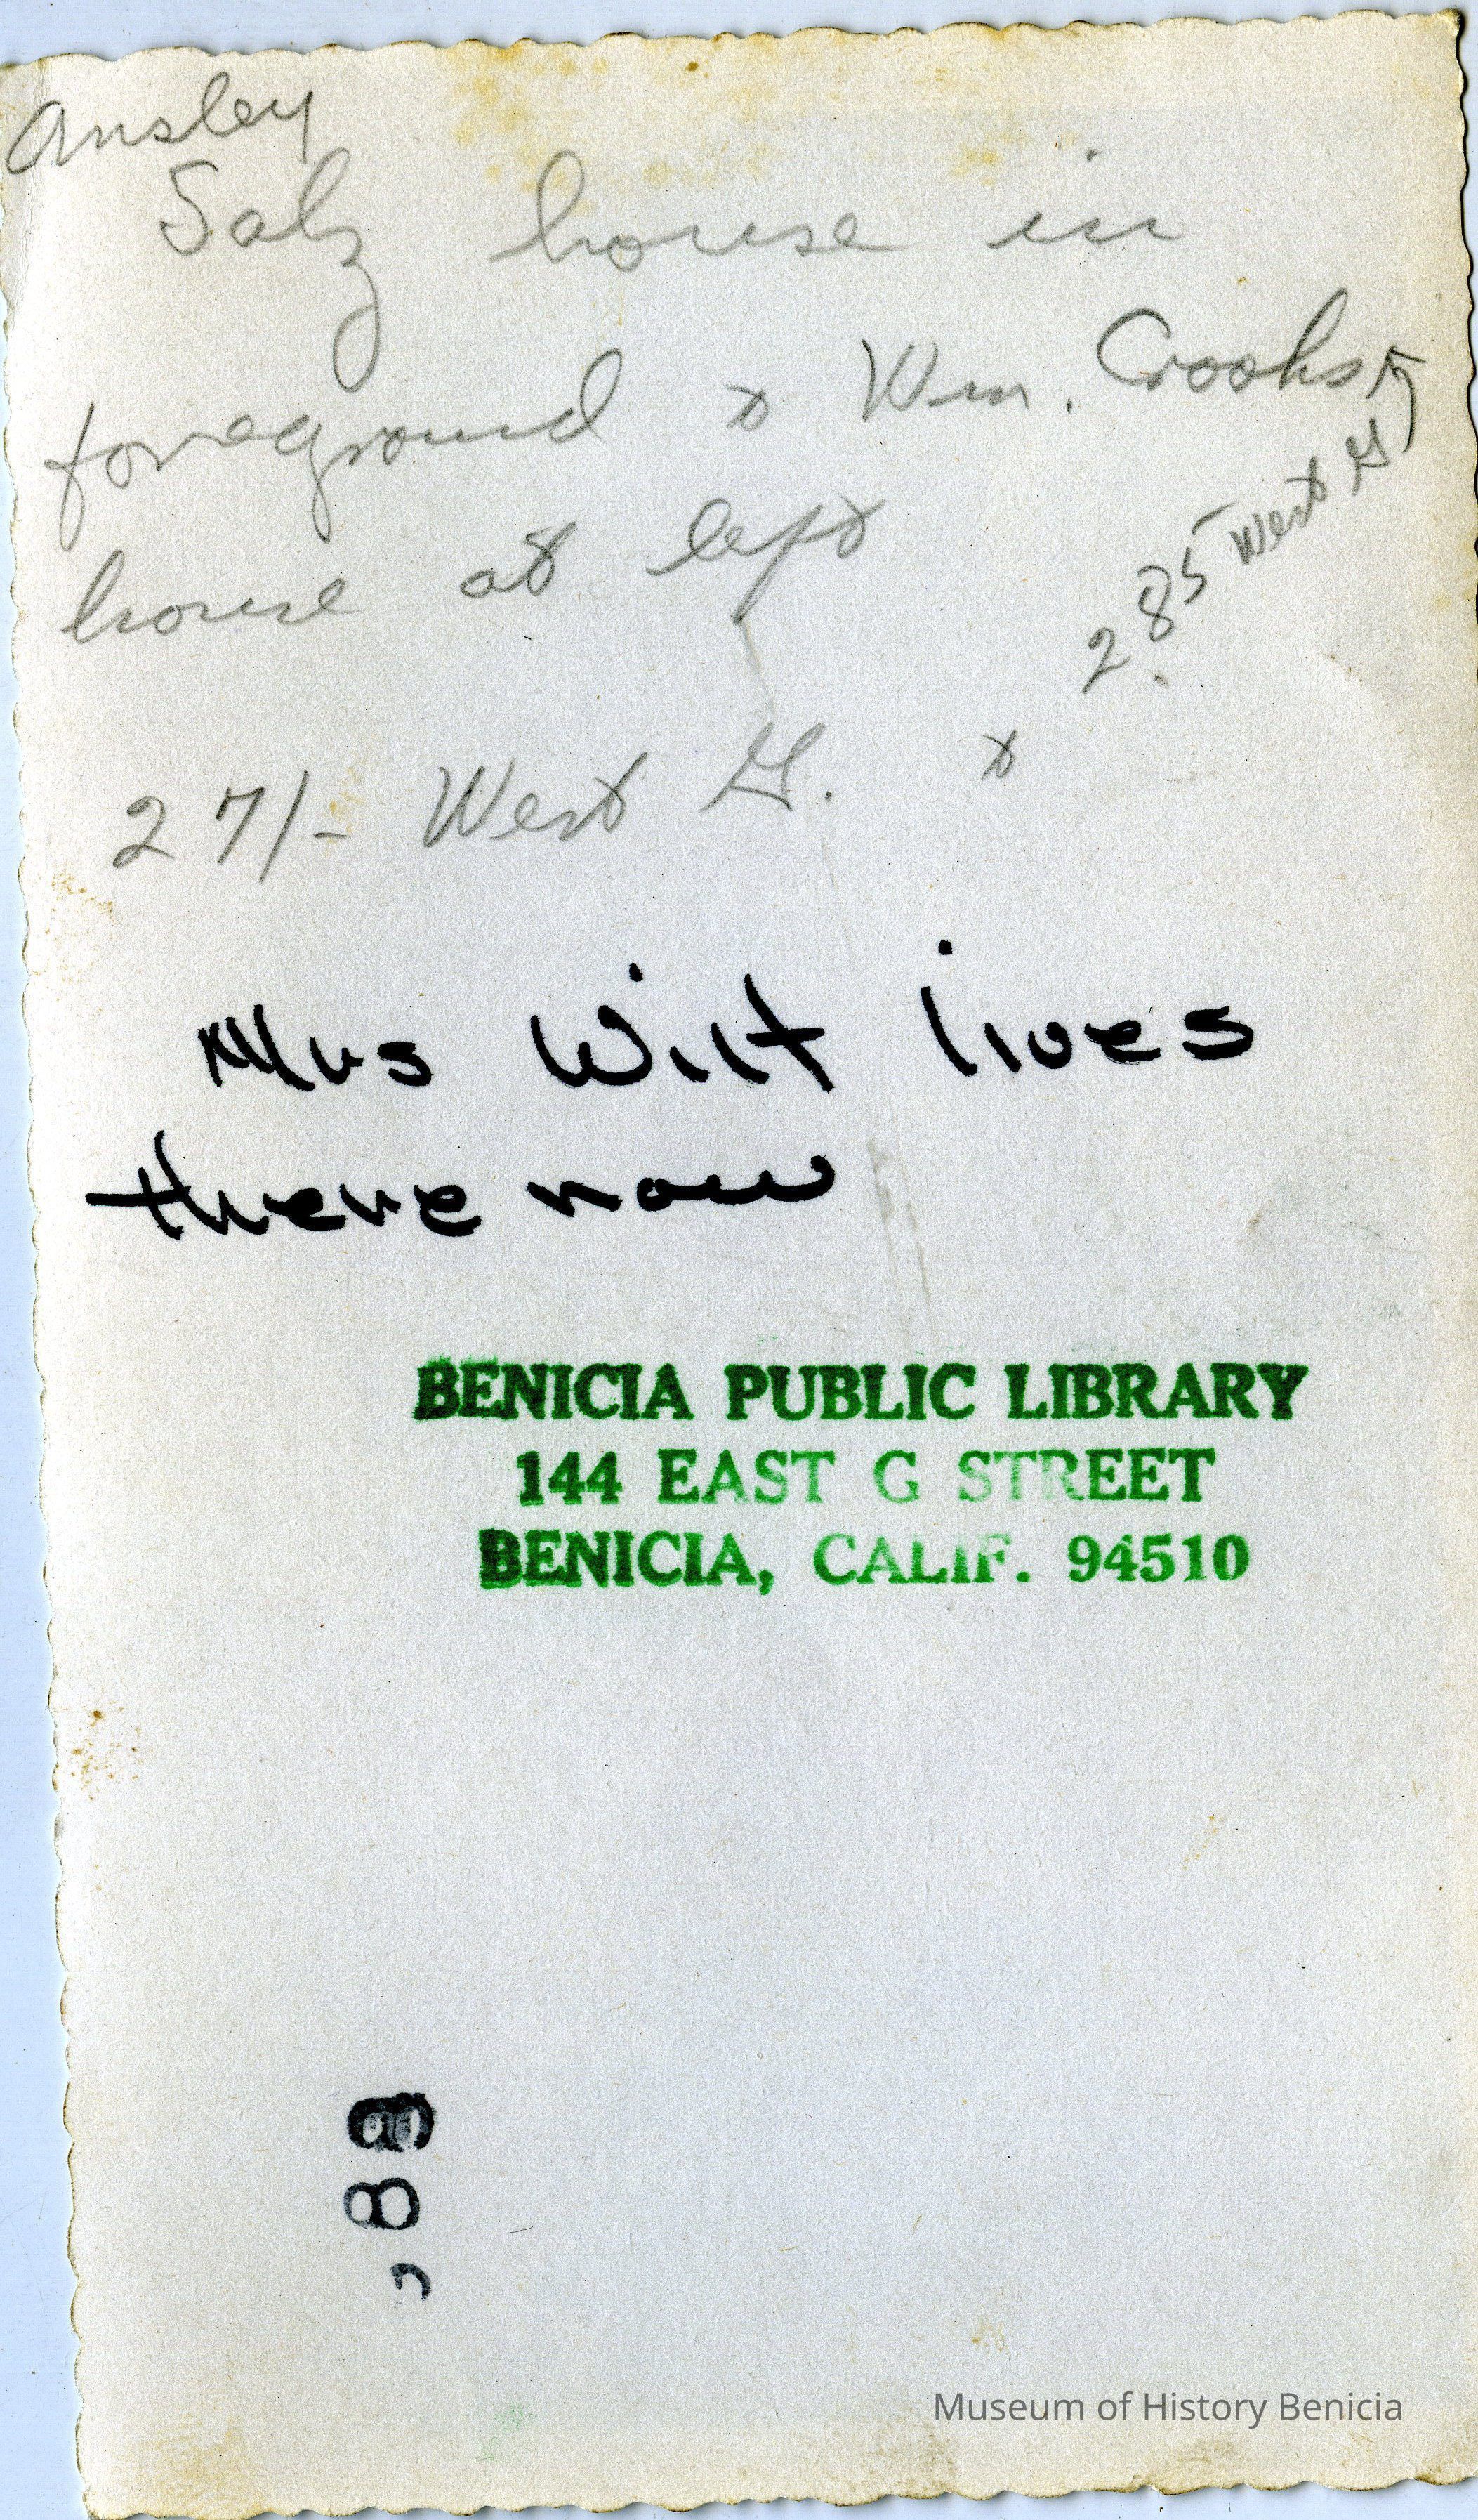 Ansley
Salz house in
foreground & Wm. Crooks
house at left
285 West G
271- West G. &
Mrs Wilt lives
there now
BENICIA PUBLIC LIBRARY
144 EAST G STREET
BENICIA, CALIF. 94510
Museum of History Benicia